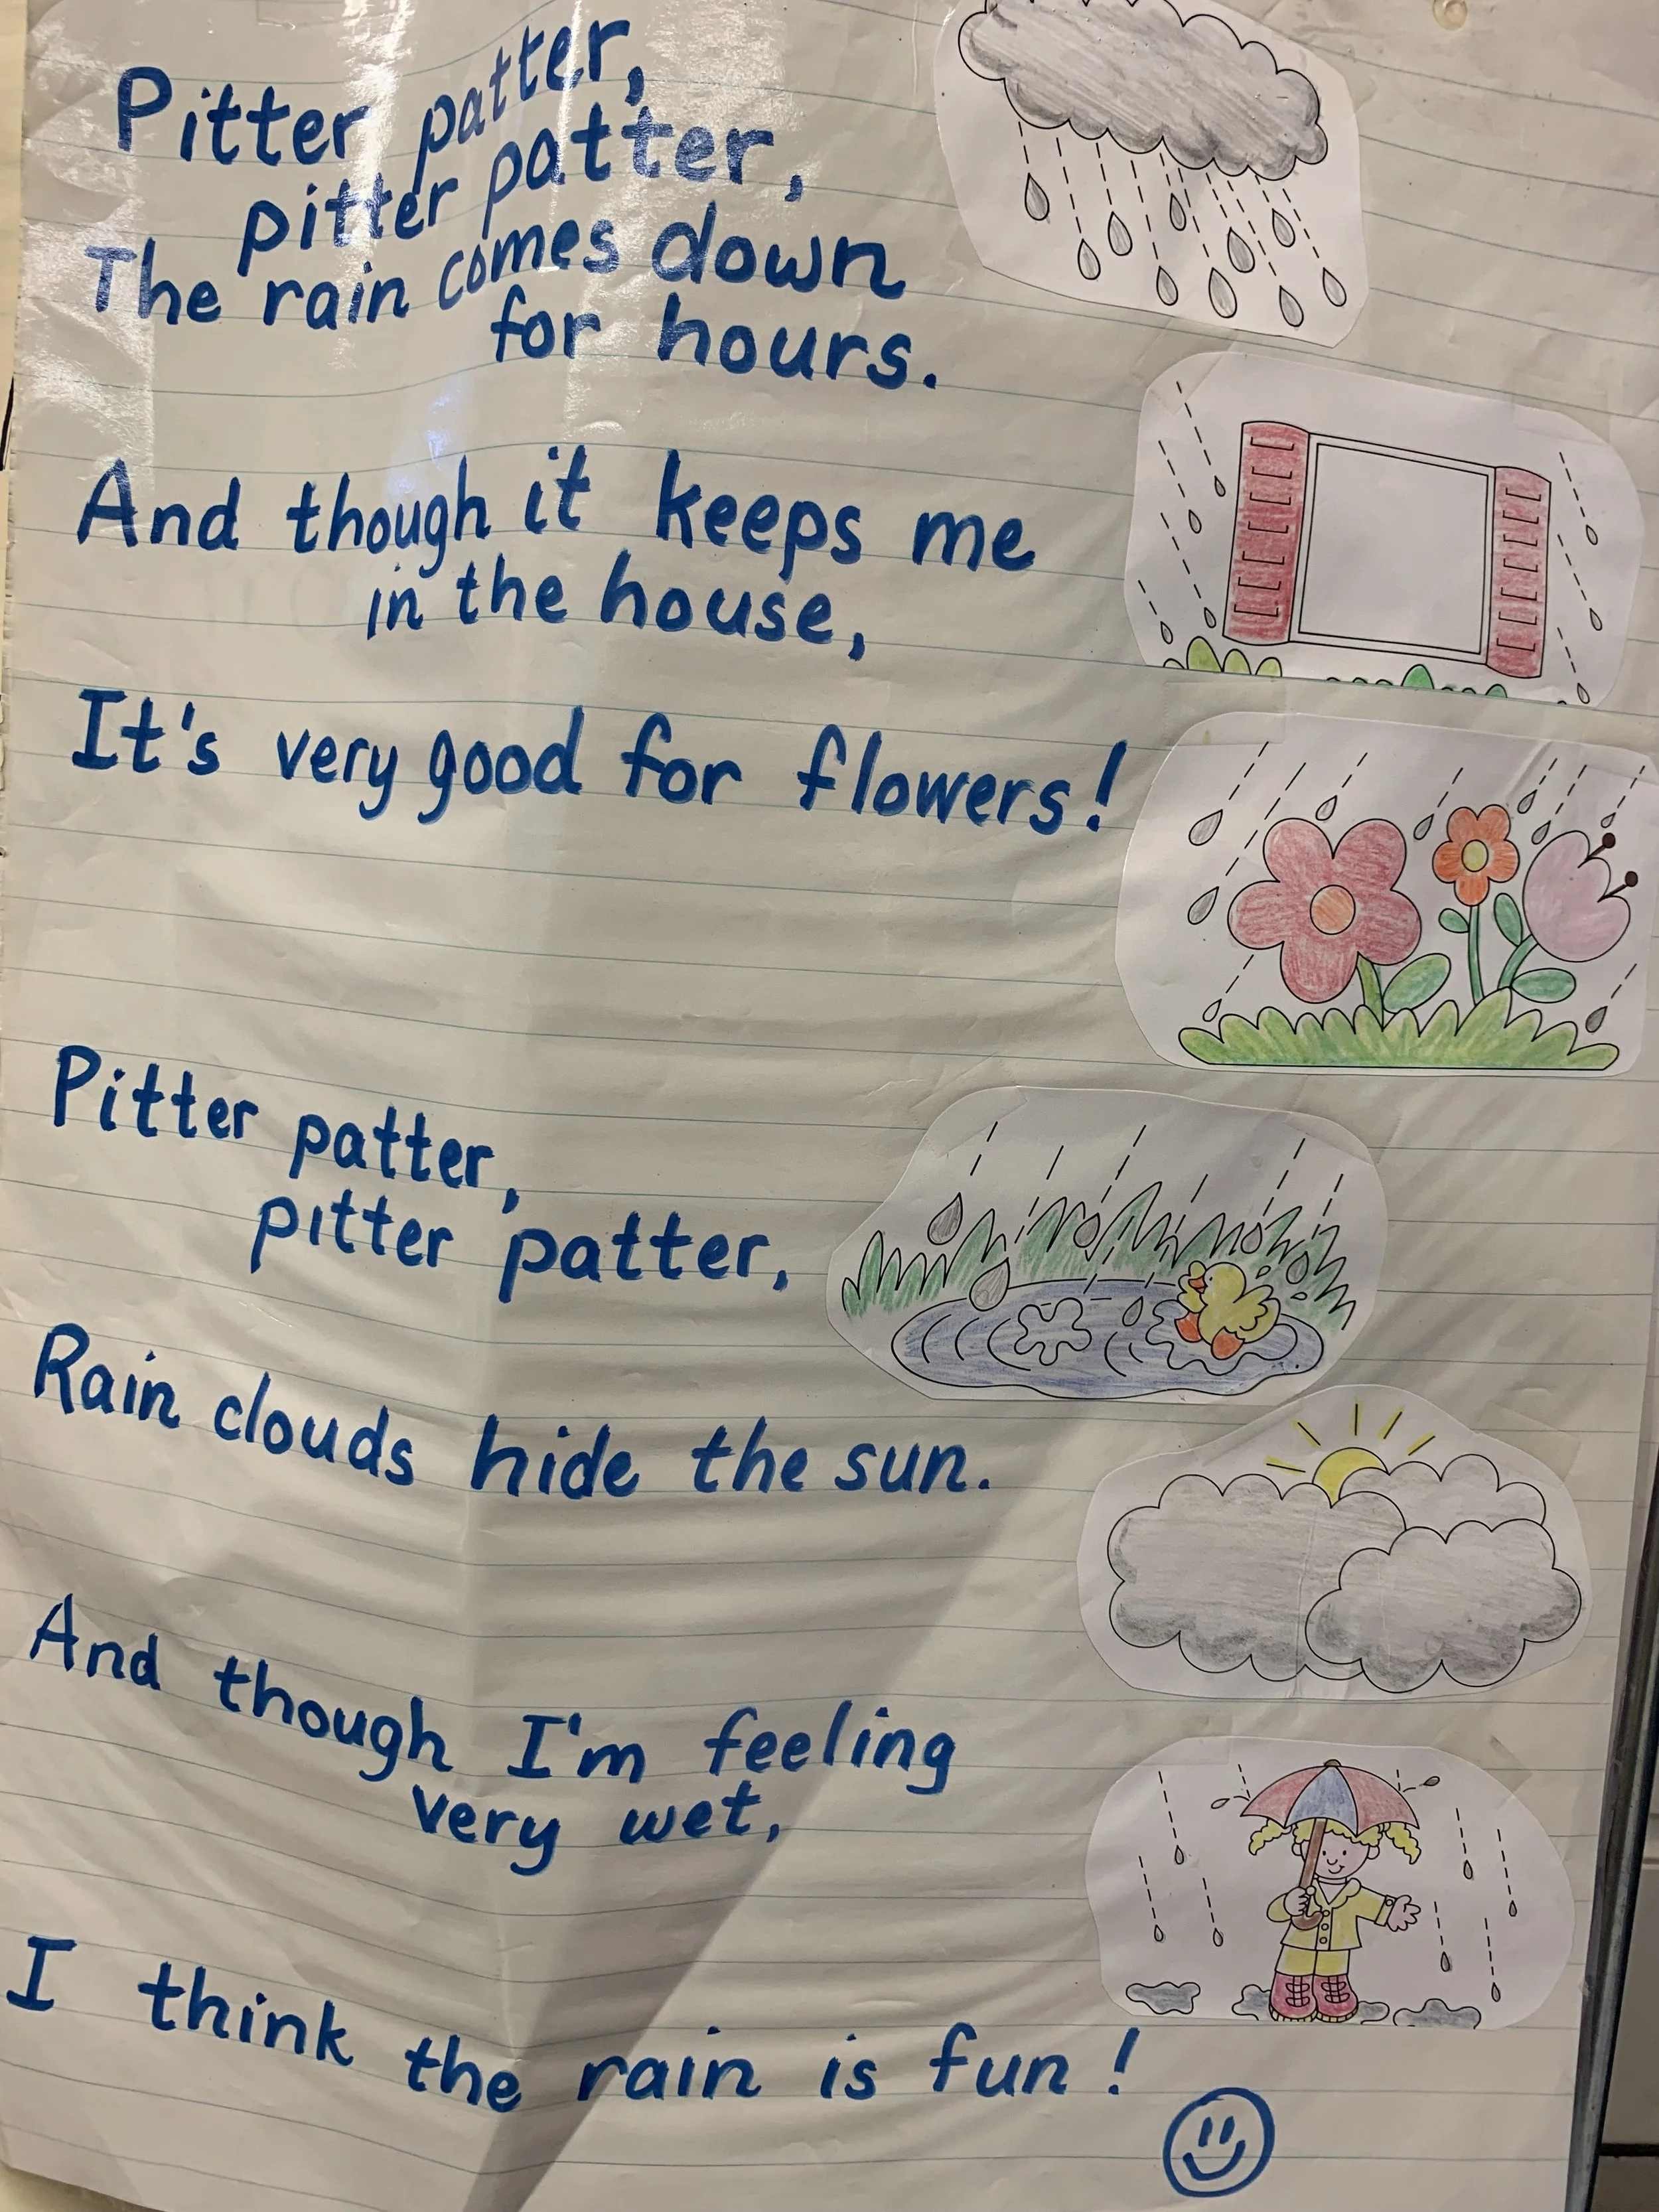 Pitter patter,
pitter patter,
The rain comes down
for hours.
And though it keeps me
in the house,
It's very good for flowers!
Pitter patter,
pitter patter,
Rain clouds hide the sun.
And though I'm feeling
very wet,
I think the rain is fun!